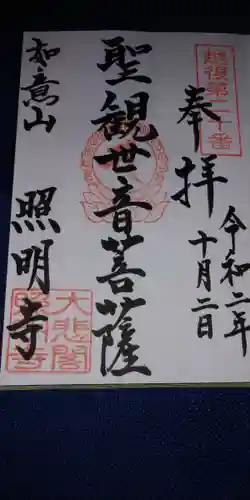 越後第二十番
奉拝
令和二年
十月二日
聖観世音菩薩
如意山
照明寺
大悲閣
照明寺